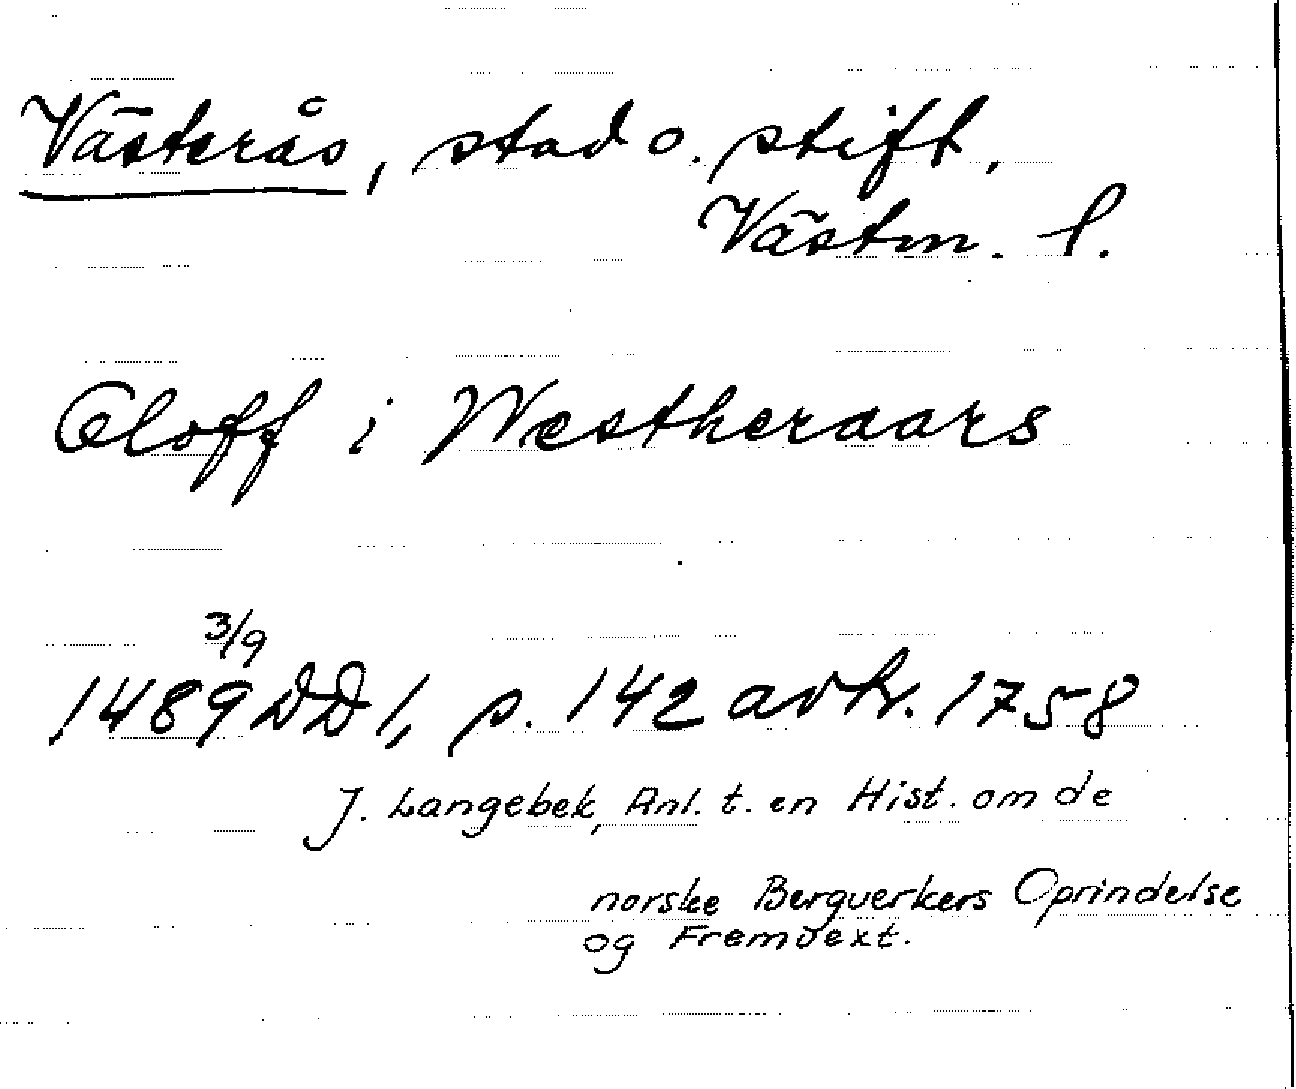 Västerås, stad o. stift,
Västm. l.
Oloff i Westheraars
3/9
1489 DD 1, s. 142 avtr. 1758
J. Langebek, Anl. t. en Hist. om de
norske Bergverkers Oprindelse
og Fremvext.